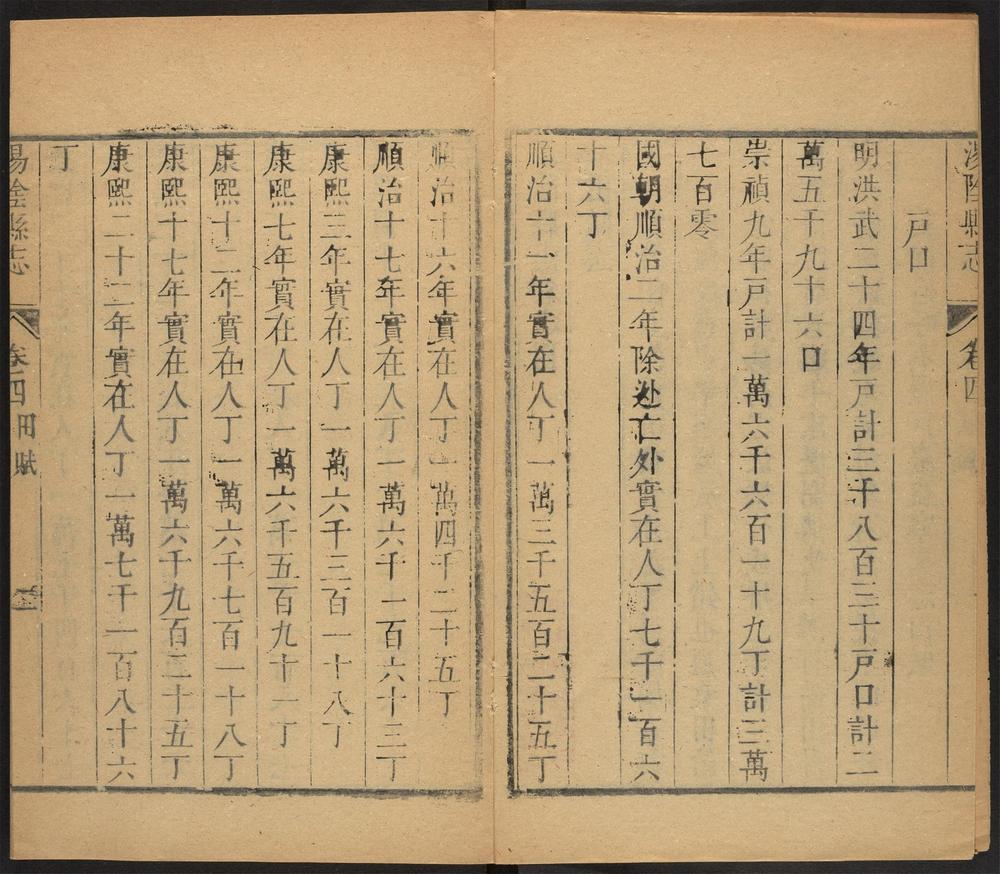 湯陰縣志
卷四
戶口
明洪武二十四年戶計三千八百三十戶口計二
萬五千九十六口
崇禎九年戶計一萬六千六百一十九丁計三萬
七百零
國朝順治二年除逃亡外實在人丁七千一百六
十六丁
順治十一年實在人丁一萬三千五百二十五丁
順治十六年實在人丁一萬四千二十五丁
順治十七年實在人丁一萬六千一百六十三丁
康熙三年實在人丁一萬六千三百一十八丁
康熙七年實在人丁一萬六千五百九十一丁
康熙十二年實在人丁一萬六千七百一十八丁
康熙十七年實在人丁一萬六千九百二十五丁
康熙二十二年實在人丁一萬七千一百八十六
丁
湯陰縣志
卷四 田賦